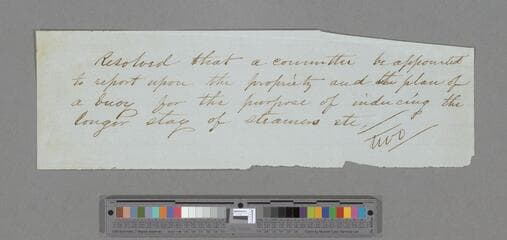 Resolved that a committee be appointed
to report upon the propriety and the plan of
a buoy for the purpose of inducing the
longer stay of steamers etc.
two